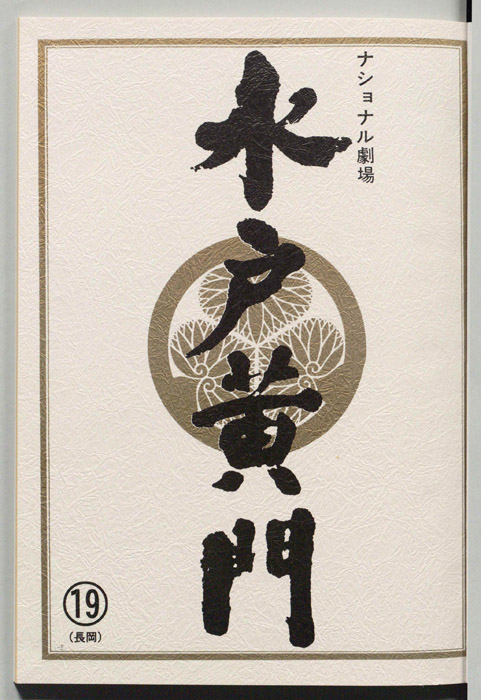 ナショナル劇場
水戸黄門
19
(長岡)